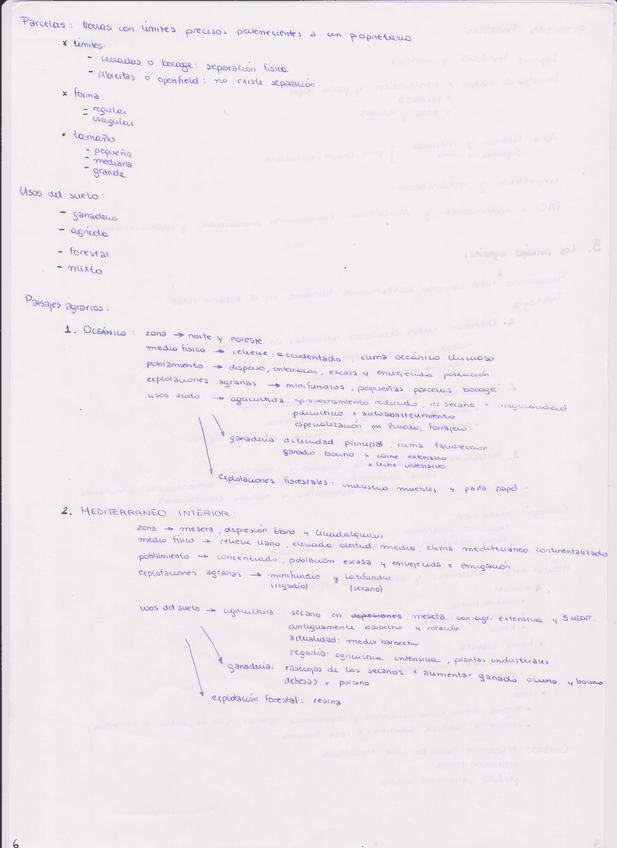 Parcelas: tierras con límites precisos pertenecientes a un propietario
x límites:
- cerradas o bocage: separación física
- abiertas o openfield: no existe separación
x forma:
- regular
- irregular
x tamaño
- pequeña
- mediana
- grande
Usos del suelo:
- ganadero
- agrícola
- forestal
- mixto
Paisajes agrarios:
1. OCEÁNICO: zona → norte y noreste
medio físico → relieve accidentado, clima oceánico lluvioso
poblamiento → disperso, intercalar, escasa y envejecida población
explotaciones agrarias → minifundios, pequeñas parcelas bocage
usos suelo → agricultura: aprovechamiento reducido, de secano x
policultivo x autoabastecimiento
especialización en huerta, forrajero
ganadería: actividad principal, clima favorecedor
ganado bovino x carne extensivo
x leche intensivo
explotaciones forestales: industria muebles y pasta papel
2. MEDITERRÁNEO INTERIOR
zona → meseta, depresión Ebro y Guadalquivir
medio físico → relieve llano, elevada altitud media, clima mediterráneo continentalizado
poblamiento → concentrado, población escasa y envejecida x emigración
explotaciones agrarias → minifundio y latifundio
(regadío) (secano)
usos del suelo → agricultura: secano en depresiones meseta con agr. extensiva y
antiguamente barbecho y rotación
actualidad: medio barbecho
regadío: agricultura intensiva, plantas industriales
ganadería: rastrojos de los secanos x aumentar ganado ovino y bovino
dehesas x porcino
explotación forestal: resina
6